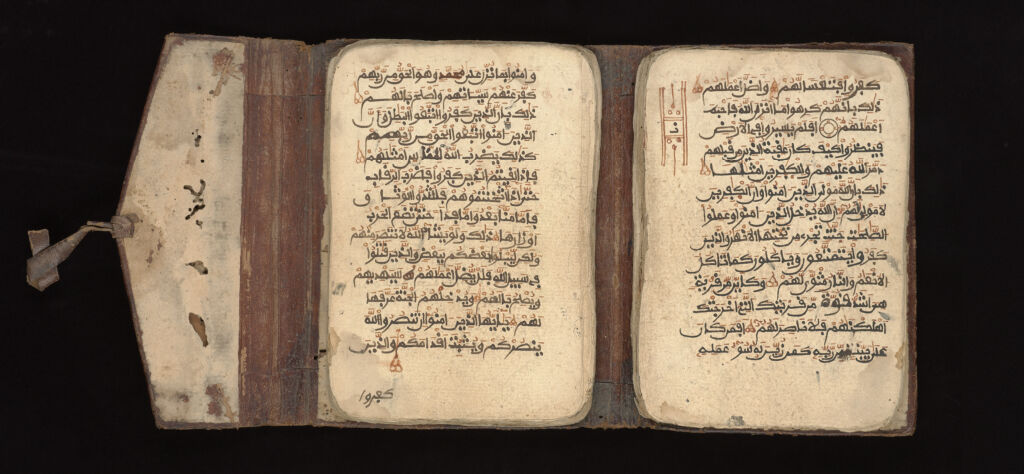 وامنوا بما نزل على محمد وهو الحق من ربهم
كفر عنهم سيئاتهم واصلح بالهم
ذلك بان الذين كفروا اتبعوا البطل وان
الذين امنوا اتبعوا الحق من ربهم
كذلك يضرب الله للناس امثلهم
فاذا لقيتم الذين كفروا فضرب الرقاب
حتى اذا اثخنتموهم فشدوا الوثاق و
فاما منا بعد واما فدا حتى تضع الحرب
اوزارها ذلك ولو يشا الله لانتصر منهم
ولكن ليبلوا بعضكم ببعض والذين قتلوا
في سبيل الله فلن يضل اعملهم سيهديهم
ويصلح بالهم ويدخلهم الجنة عرفها
لهم يايها الذين امنوا ان تنصروا الله
ينصركم ويثبت اقدامكم والذين
كفروا
كفروا فتعسا لهم واضل اعملهم
ذلك بانهم كرهوا ما انزل الله فاحبط
اعملهم افلم يسيروا في الارض
فينظروا كيف كان عقبة الذين من قبلهم
دمر الله عليهم وللكفرين امثلها
ذلك بان الله مولى الذين امنوا وان الكفرين
لا مولى لهم ان الله يدخل الذين امنوا وعملوا
الصلحت جنت تجري من تحتها الانهر والذين
كفروا يتمتعون وياكلون كما تاكل
الانعم والنار مثوى لهم وكاين من قرية
هي اشد قوة من قريتك التي اخرجتك
اهلكنهم فلا ناصر لهم افمن كان
على بينة من ربه كمن زين له سو عمله